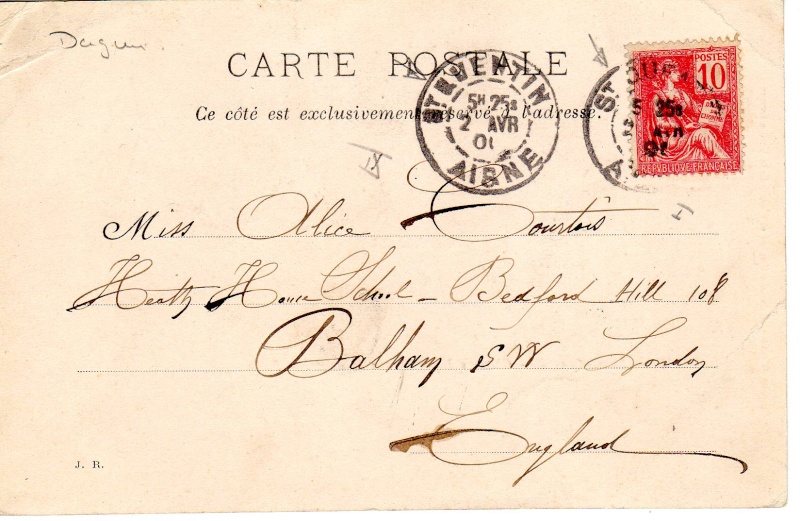 CARTE POSTALE
Ce côté est exclusivement réservé à l'adresse.
ST QUENTIN
5H 25S
2 AVR
01
AISNE
POSTES
10
REPUBLIQUE FRANÇAISE
Miss Alice Courtois
Heath House School - Bedford Hill 108
Balham SW London
England
J. R.